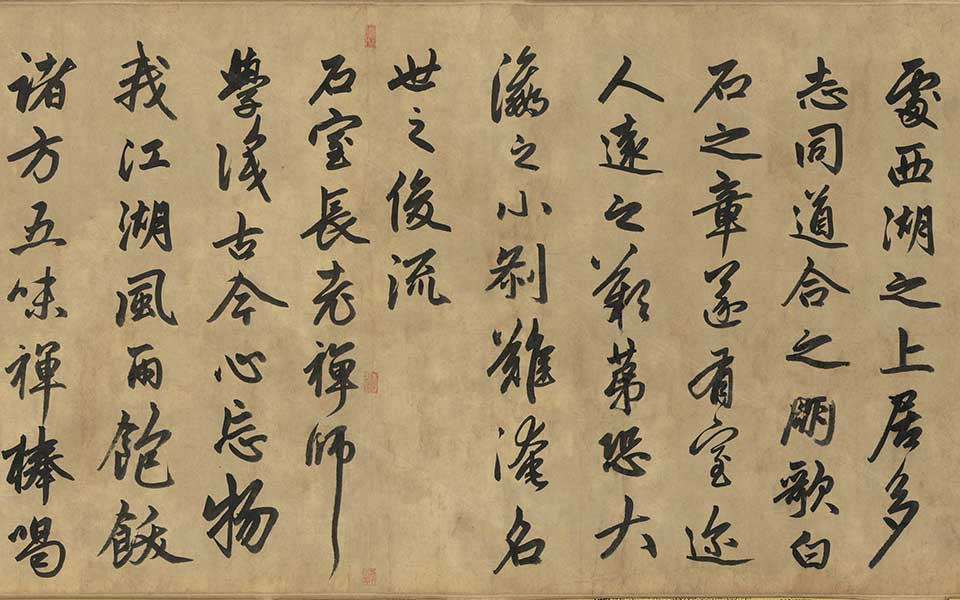 處西湖之上居多
志同道合之朋歌白
石之章遂有室迩
人遠之歎第恐大
瀛之小剎難淹名
世之俊流
石室長老禪師
學識古今心忘物
我江湖風雨飽飫
諸方五味禪棒喝